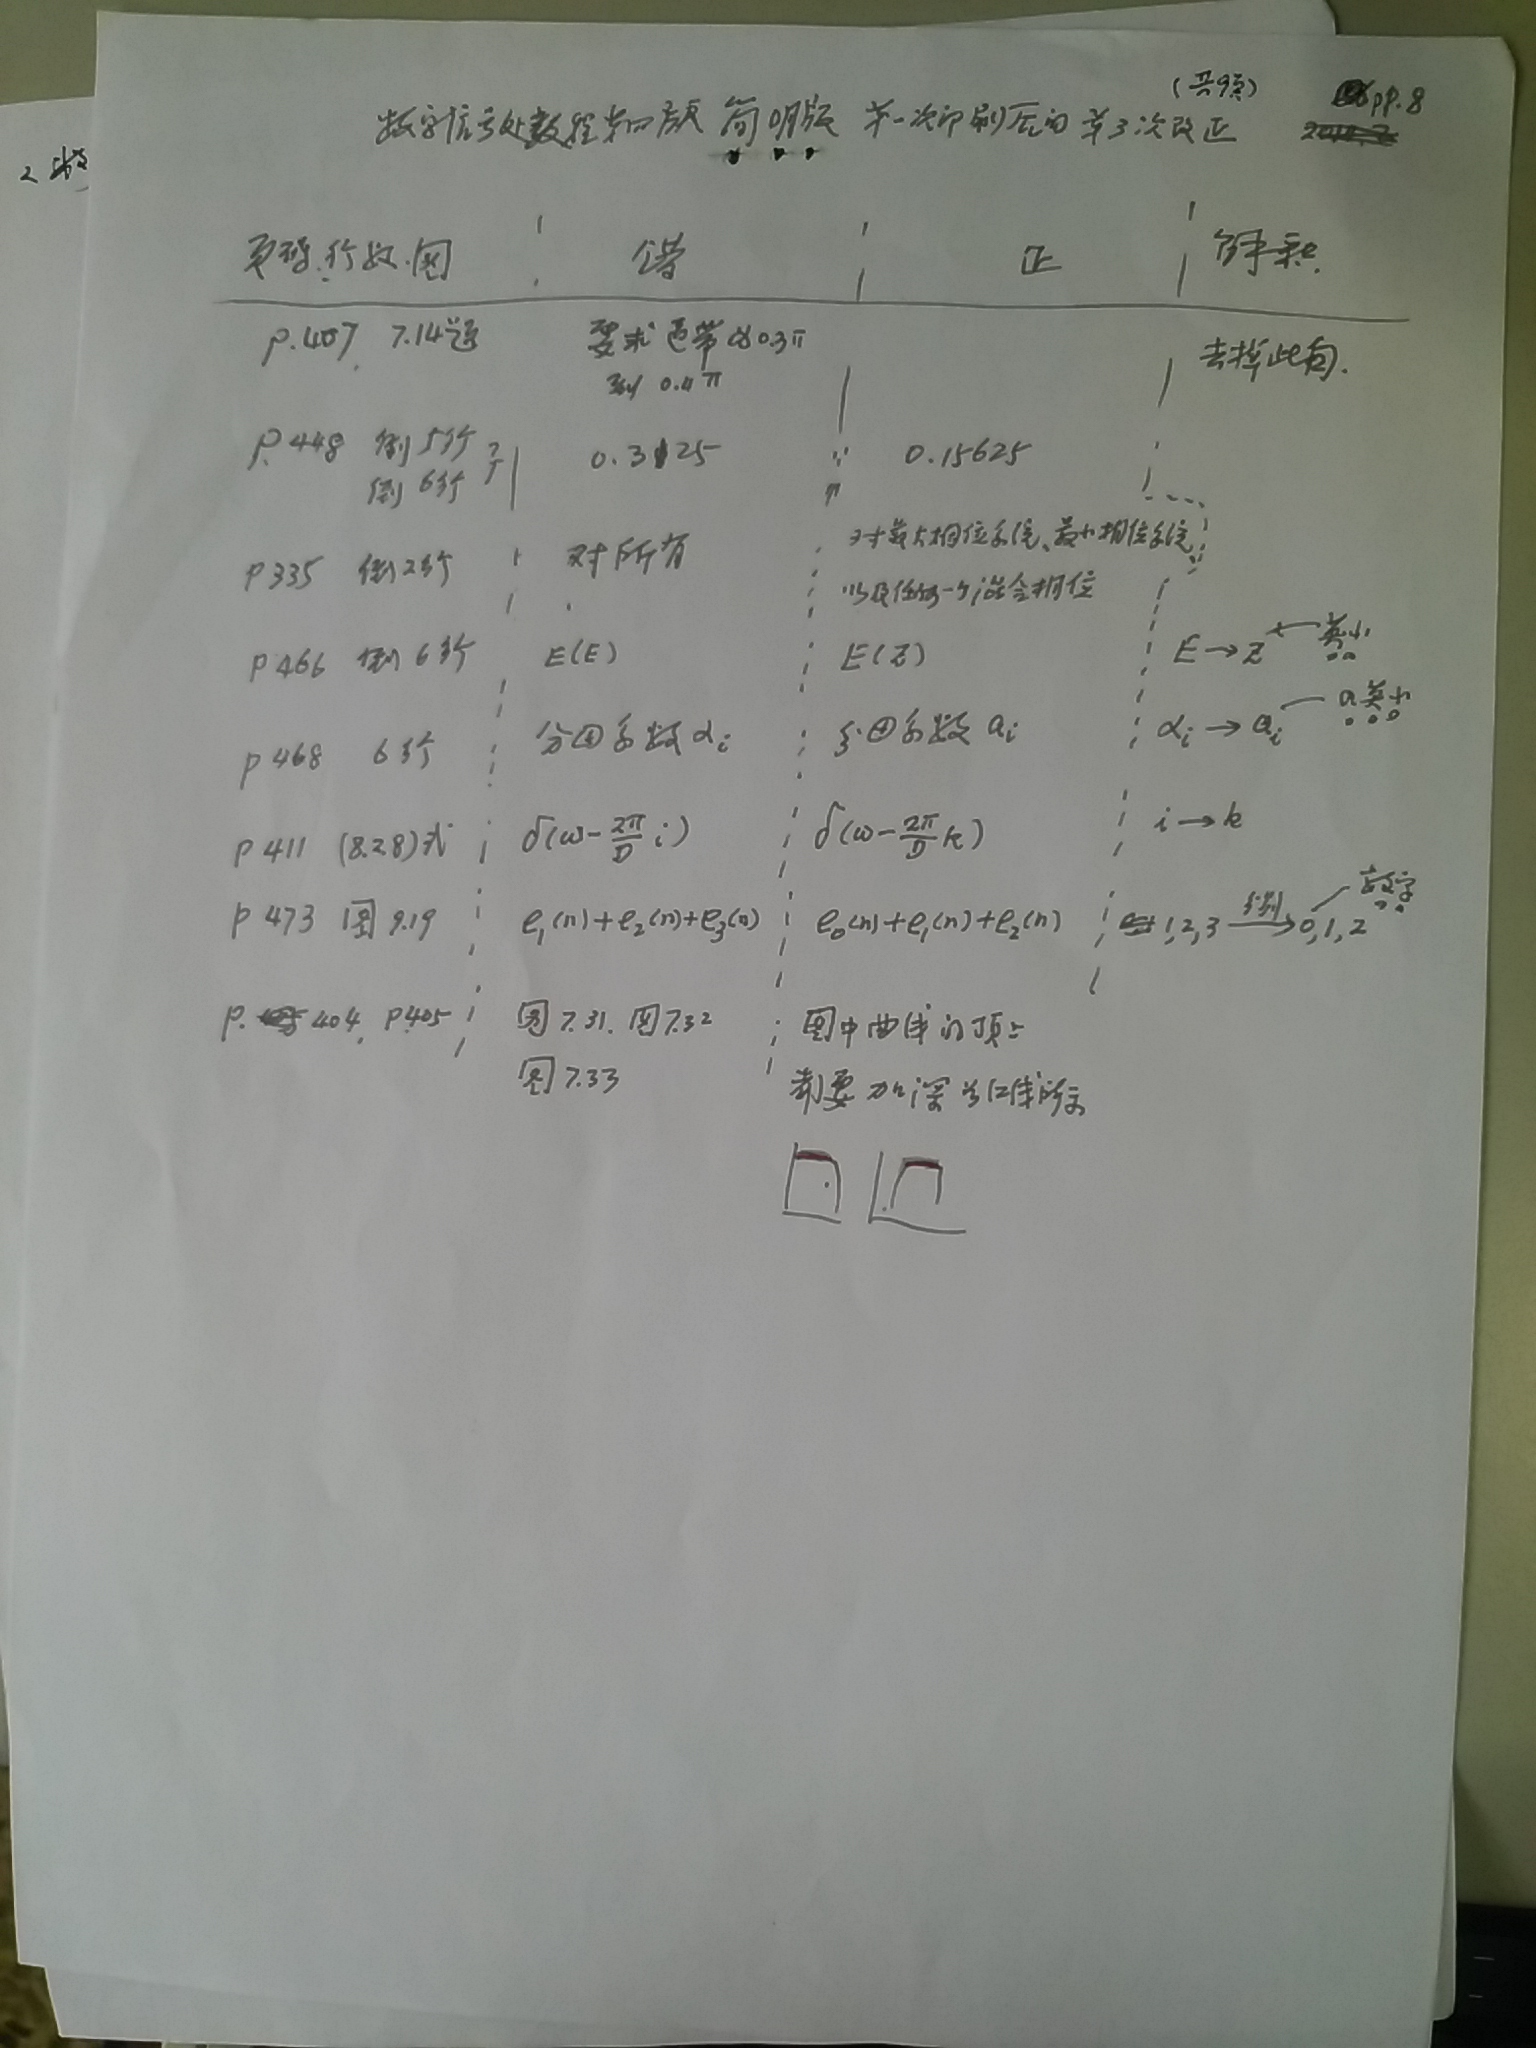 (共9页) pp.8
数字信号处教程第四版 简明版 第一次印刷后的第3次改正
页码.行数.图 错 正 解释.
p.407, 7.14题 要求过带从0.3π 去掉此句.
到 0.4π
p.448 倒5行 0.3125 0.15625
倒6行
p335 倒2行 对所有 对最大相位系统、最小相位系统
以及任何一个混合相位
p466 倒6行 E(E) E(Z) E→Z 英小
p468 6行 分母系数αi 分母系数ai αi→ai a英小
p411 (8.2.8)式 δ(ω-2π/D i) δ(ω-2π/D k) i→k
p473 图9.19 e₁(n)+e₂(n)+e₃(n) e₀(n)+e₁(n)+e₂(n) 1,2,3 分别→0,1,2 数字
p. 404, p405 图7.31. 图7.32 图中曲线的顶上
图7.33 都要加深为红线所示